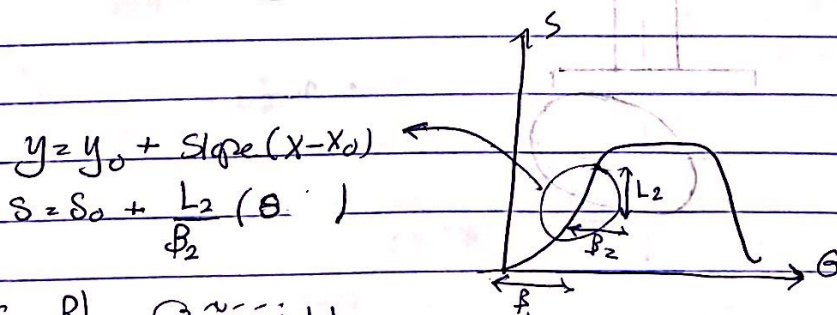 S
y = y₀ + Slope (x - x₀)
S = S₀ + L₂/β₂ (θ )
L₂
β₂
θ
β₁